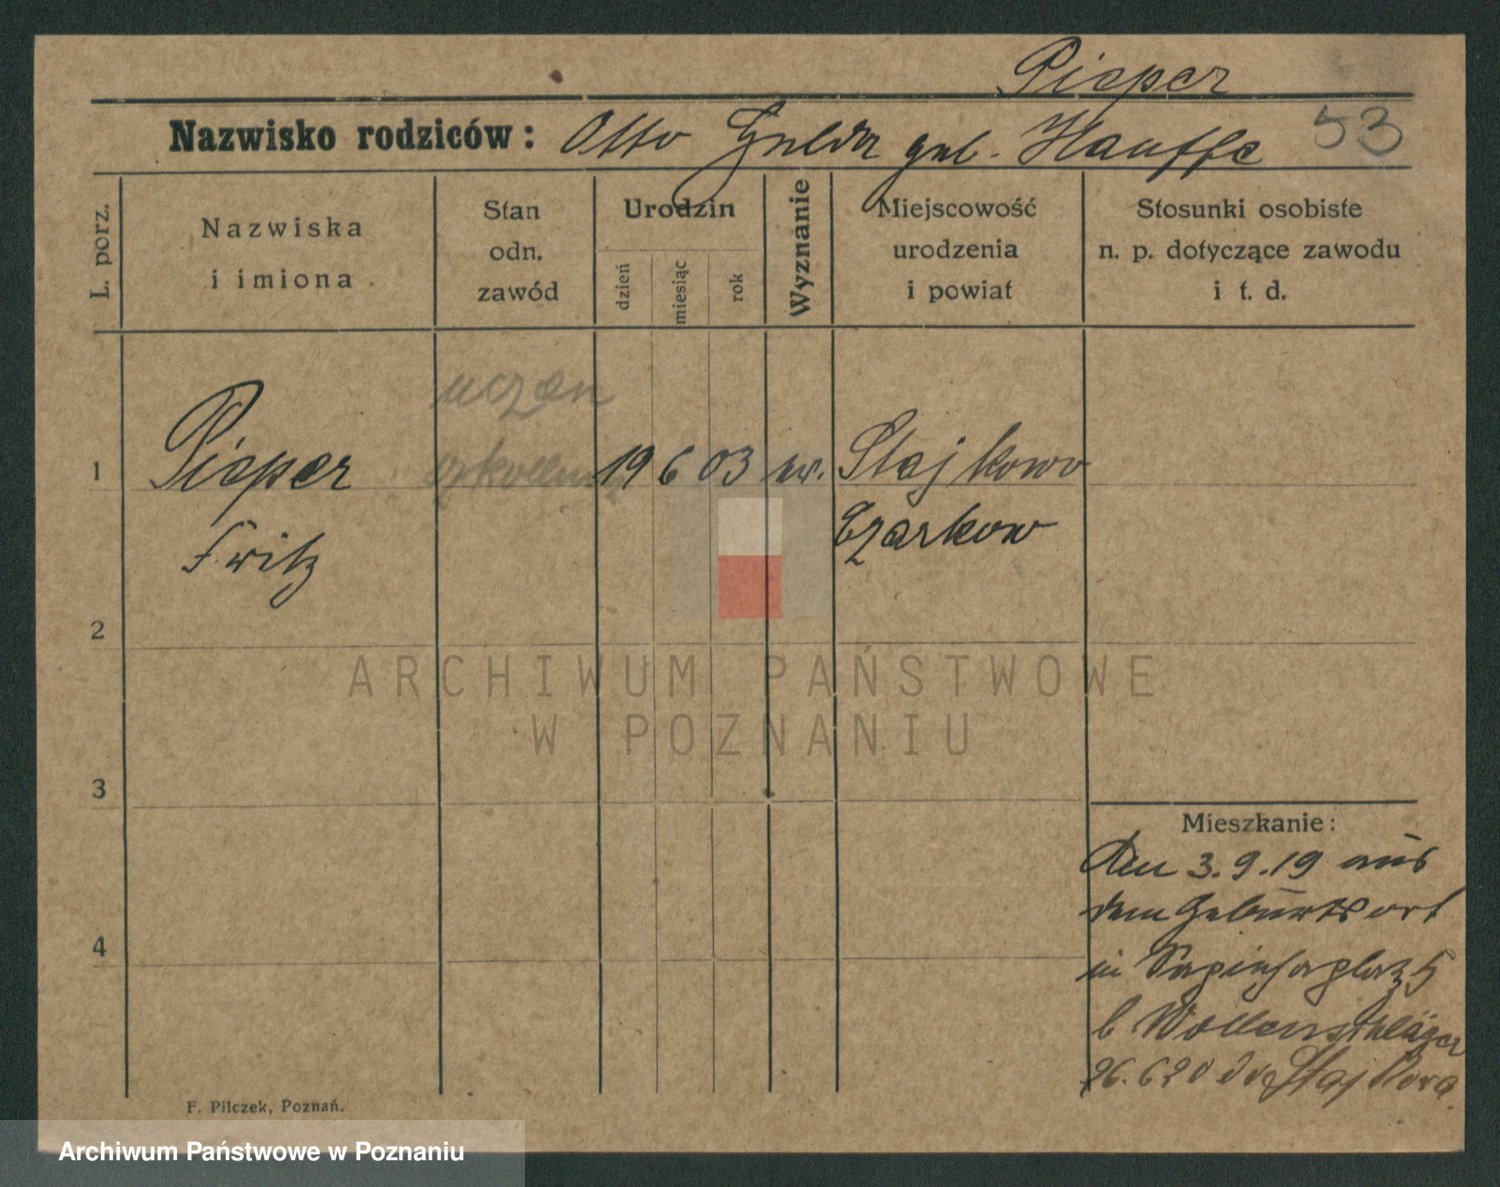 Pieper
Nazwisko rodziców: Otto Hulda geb. Hauffe 53
L. porz.
Nazwiska
i imiona
Stan
odn.
zawód
Urodzin
dzień
miesiąc
rok
Wyznanie
Miejscowość
urodzenia
i powiat
Stosunki osobiste
n. p. dotyczące zawodu
i t. d.
uczeń
1 Pieper 19 6 03 ew. Stajkowo
Fritz Czarkow
2
ARCHIWUM PAŃSTWOWE
W POZNANIU
3
Mieszkanie:
Den 3.9.19 aus
dem Geburtsort
4
in Sapiehaplatz 5
b Wollenschläger
26.6.20 Stajkowo
F. Pilczek, Poznań.
Archiwum Państwowe w Poznaniu